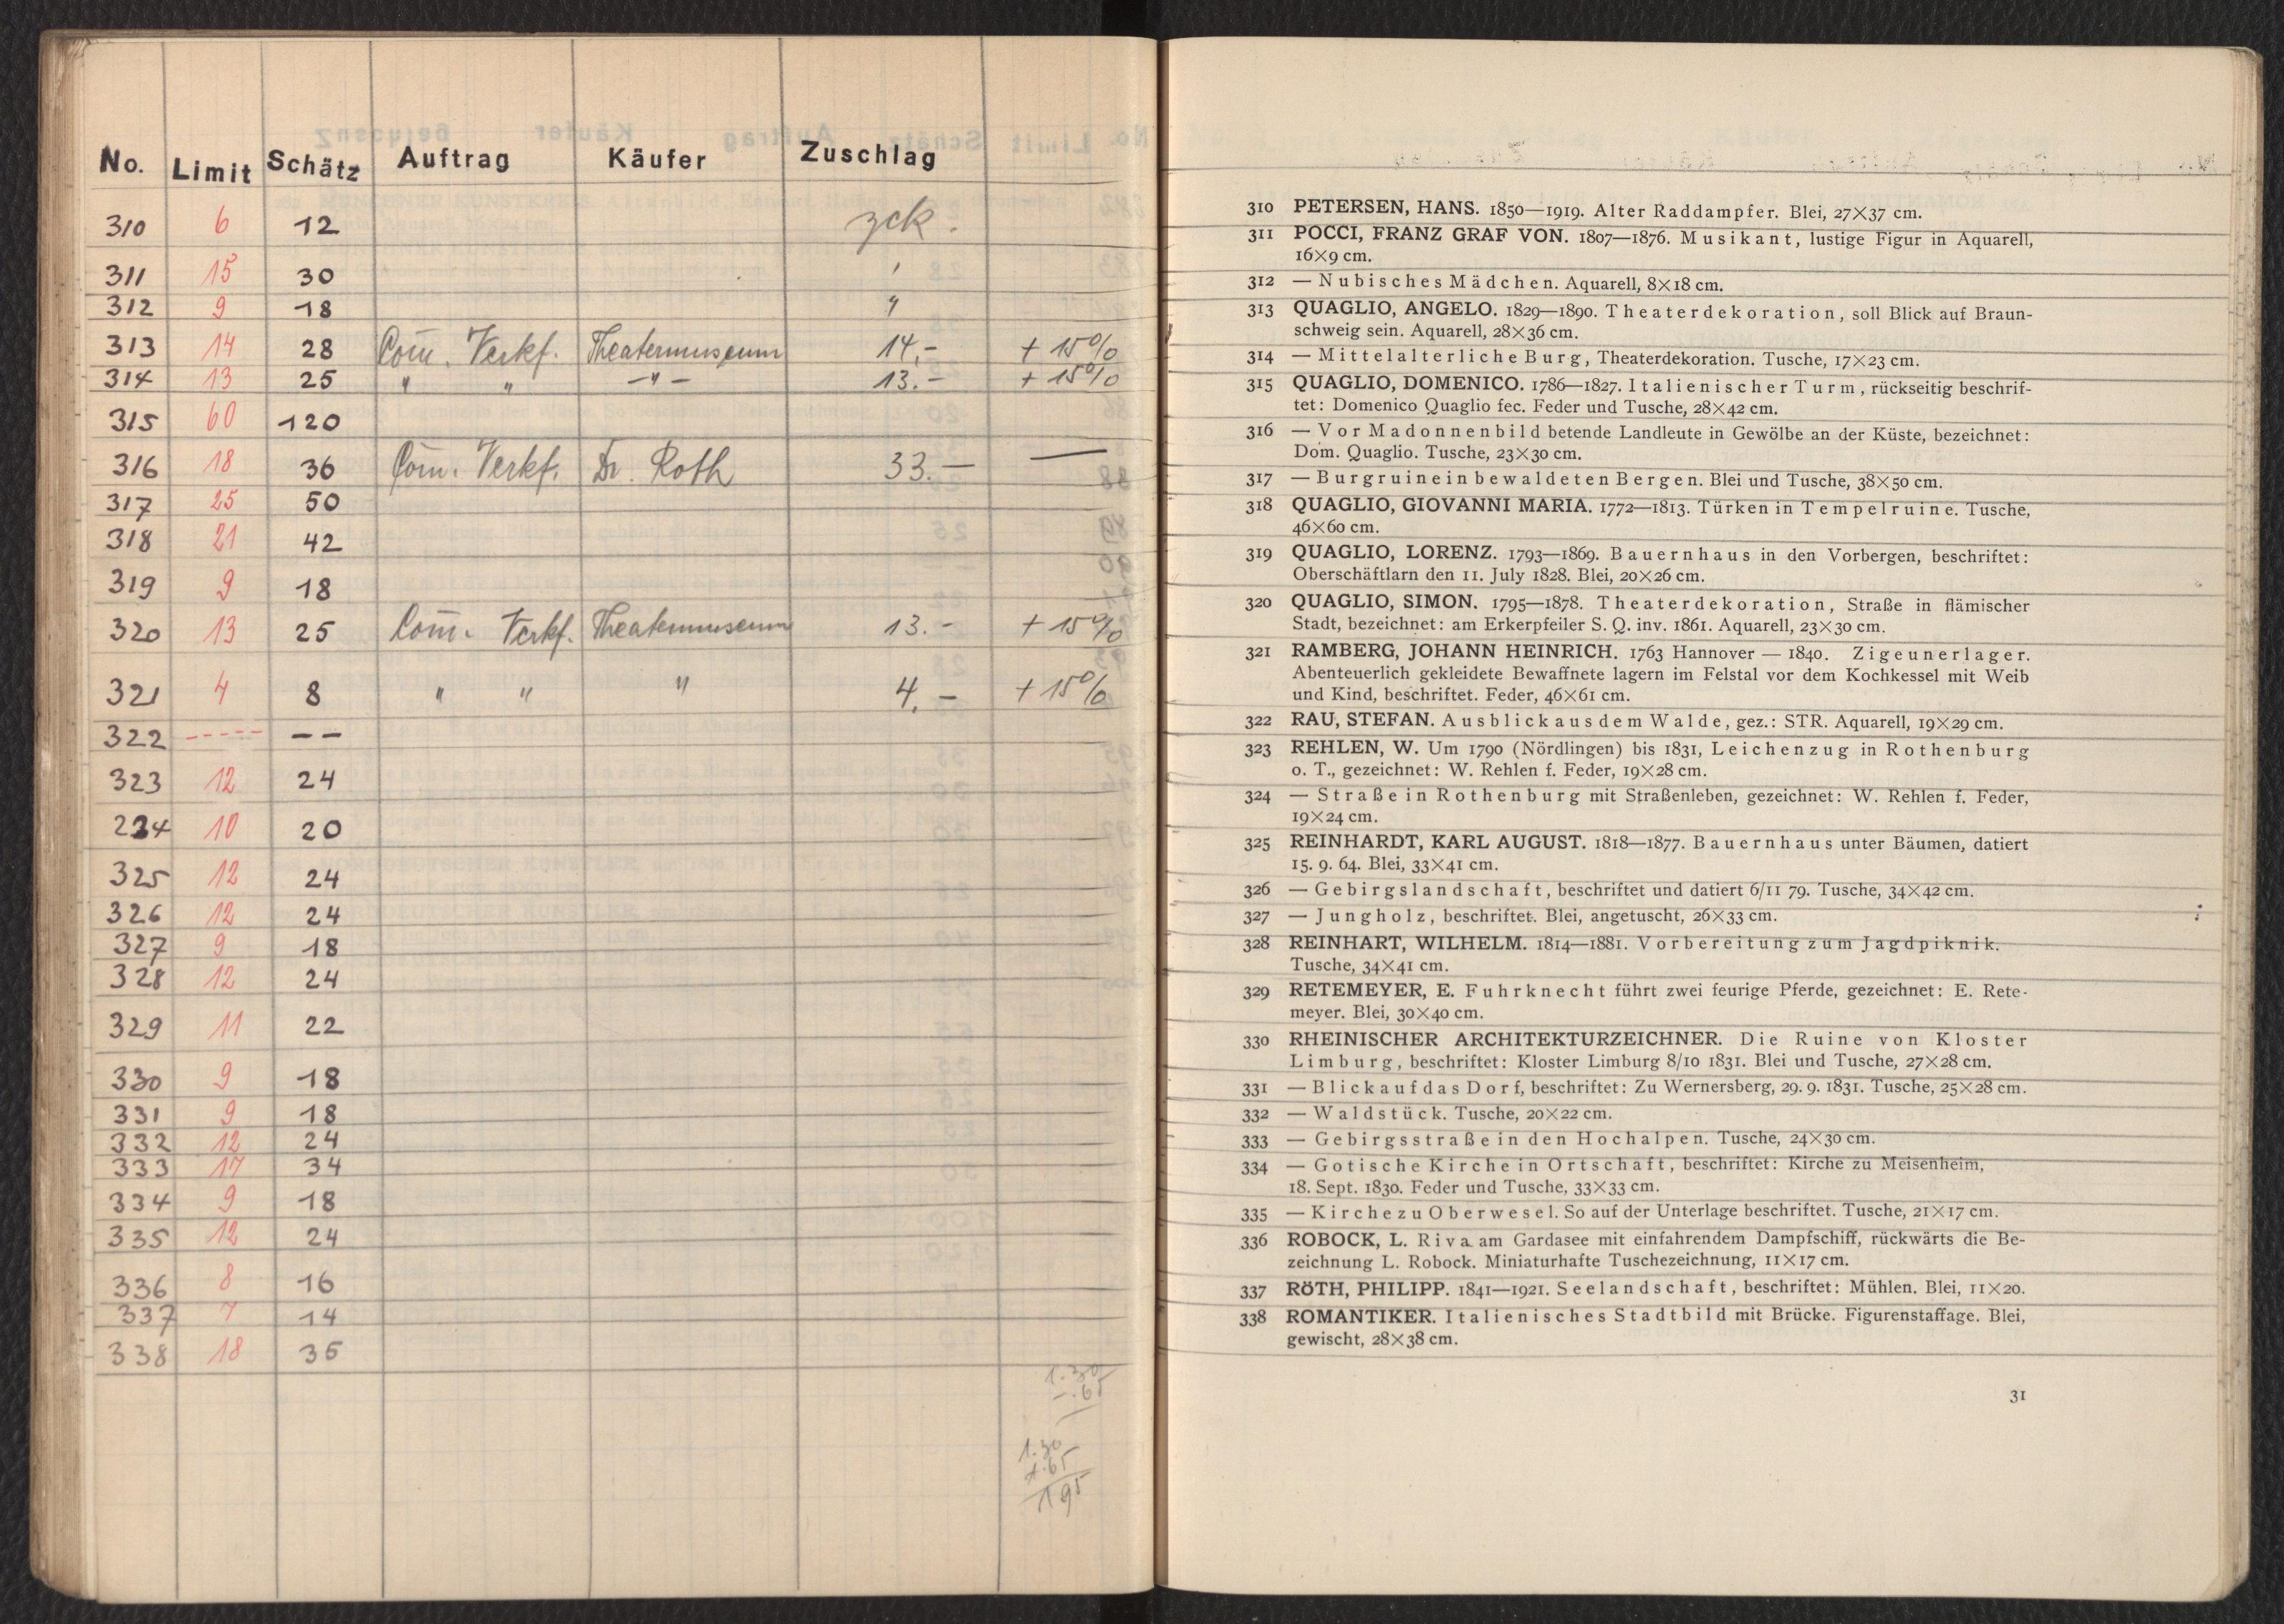 No. Limit Schätz Auftrag Käufer Zuschlag
310 6 12 zck.
311 15 30 "
312 9 18 "
313 14 28 Com. Verkf. Theatermuseum 14.- + 15%
314 13 25 " " -"- 13.- + 15%
315 60 120
316 18 36 Com. Verkf. Dr. Roth 33.— —
317 25 50
318 21 42
319 9 18
320 13 25 Com. Verkf. Theatermuseum 13.- + 15%
321 4 8 " " " 4.- + 15%
322 ----- --
323 12 24
224 10 20
325 12 24
326 12 24
327 9 18
328 12 24
329 11 22
330 9 18
331 9 18
332 12 24
333 17 34
334 9 18
335 12 24
336 8 16
337 7 14
338 18 36
1.30
-.65
1.30
1.65
195
310 PETERSEN, HANS. 1850—1919. Alter Raddampfer. Blei, 27×37 cm.
311 POCCI, FRANZ GRAF VON. 1807—1876. Musikant, lustige Figur in Aquarell,
16×9 cm.
312 — Nubisches Mädchen. Aquarell, 8×18 cm.
313 QUAGLIO, ANGELO. 1829—1890. Theaterdekoration, soll Blick auf Braun-
schweig sein. Aquarell, 28×36 cm.
314 — Mittelalterliche Burg, Theaterdekoration. Tusche, 17×23 cm.
315 QUAGLIO, DOMENICO. 1786—1827. Italienischer Turm, rückseitig beschrif-
tet: Domenico Quaglio fec. Feder und Tusche, 28×42 cm.
316 — Vor Madonnenbild betende Landleute in Gewölbe an der Küste, bezeichnet:
Dom. Quaglio. Tusche, 23×30 cm.
317 — Burgruine in bewaldeten Bergen. Blei und Tusche, 38×50 cm.
318 QUAGLIO, GIOVANNI MARIA. 1772—1813. Türken in Tempelruine. Tusche,
46×60 cm.
319 QUAGLIO, LORENZ. 1793—1869. Bauernhaus in den Vorbergen, beschriftet:
Oberschäftlarn den 11. July 1828. Blei, 20×26 cm.
320 QUAGLIO, SIMON. 1795—1878. Theaterdekoration, Straße in flämischer
Stadt, bezeichnet: am Erkerpfeiler S. Q. inv. 1861. Aquarell, 23×30 cm.
321 RAMBERG, JOHANN HEINRICH. 1763 Hannover — 1840. Zigeunerlager.
Abenteuerlich gekleidete Bewaffnete lagern im Felstal vor dem Kochkessel mit Weib
und Kind, beschriftet. Feder, 46×61 cm.
322 RAU, STEFAN. Ausblick aus dem Walde, gez.: STR. Aquarell, 19×29 cm.
323 REHLEN, W. Um 1790 (Nördlingen) bis 1831, Leichenzug in Rothenburg
o. T., gezeichnet: W. Rehlen f. Feder, 19×28 cm.
324 — Straße in Rothenburg mit Straßenleben, gezeichnet: W. Rehlen f. Feder,
19×24 cm.
325 REINHARDT, KARL AUGUST. 1818—1877. Bauernhaus unter Bäumen, datiert
15. 9. 64. Blei, 33×41 cm.
326 — Gebirgslandschaft, beschriftet und datiert 6/11 79. Tusche, 34×42 cm.
327 — Jungholz, beschriftet. Blei, angetuscht, 26×33 cm.
328 REINHART, WILHELM. 1814—1881. Vorbereitung zum Jagdpiknik.
Tusche, 34×41 cm.
329 RETEMEYER, E. Fuhrknecht führt zwei feurige Pferde, gezeichnet: E. Rete-
meyer. Blei, 30×40 cm.
330 RHEINISCHER ARCHITEKTURZEICHNER. Die Ruine von Kloster
Limburg, beschriftet: Kloster Limburg 8/10 1831. Blei und Tusche, 27×28 cm.
331 — Blick auf das Dorf, beschriftet: Zu Wernersberg, 29. 9. 1831. Tusche, 25×28 cm.
332 — Waldstück. Tusche, 20×22 cm.
333 — Gebirgsstraße in den Hochalpen. Tusche, 24×30 cm.
334 — Gotische Kirche in Ortschaft, beschriftet: Kirche zu Meisenheim,
18. Sept. 1830. Feder und Tusche, 33×33 cm.
335 — Kirche zu Oberwesel. So auf der Unterlage beschriftet. Tusche, 21×17 cm.
336 ROBOCK, L. Riva am Gardasee mit einfahrendem Dampfschiff, rückwärts die Be-
zeichnung L. Robock. Miniaturhafte Tuschezeichnung, 11×17 cm.
337 RÖTH, PHILIPP. 1841—1921. Seelandschaft, beschriftet: Mühlen. Blei, 11×20.
338 ROMANTIKER. Italienisches Stadtbild mit Brücke. Figurenstaffage. Blei,
gewischt, 28×38 cm.
31